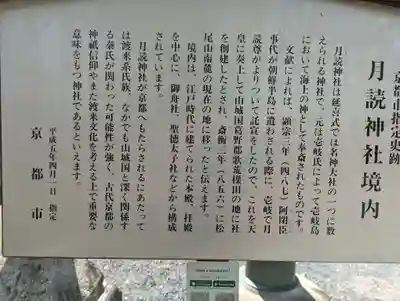 京都市指定史跡
月読神社境内
月読神社は延喜式では名神大社の一つに数
えられる神社で、元は壱岐氏によって壱岐島
において海上の神として奉斎されたものです。
文献によれば、顕宗三年（四八七）阿閉臣
事代が朝鮮半島に遣わされる際に、壱岐で月
読尊がよりついて託宣をしたので、これを天
皇に奏上して山城国葛野郡歌荒樔田の地に社
を創建したとされ、斎衡三年（八五六）に松
尾山南麓の現在の地に移ったと伝えます。
境内は、江戸時代に建てられた本殿、拝殿
を中心に、御舟社、聖徳太子社などから構成
されています。
月読神社が京都へもたらされるにあたって
は渡来系氏族、なかでも山城国と深く関係す
る秦氏が関わった可能性が強く、古代京都の
神祇信仰やまた渡来文化を考える上で重要な
意味をもつ神社であるといえます。
平成五年四月一日 指定
京都市